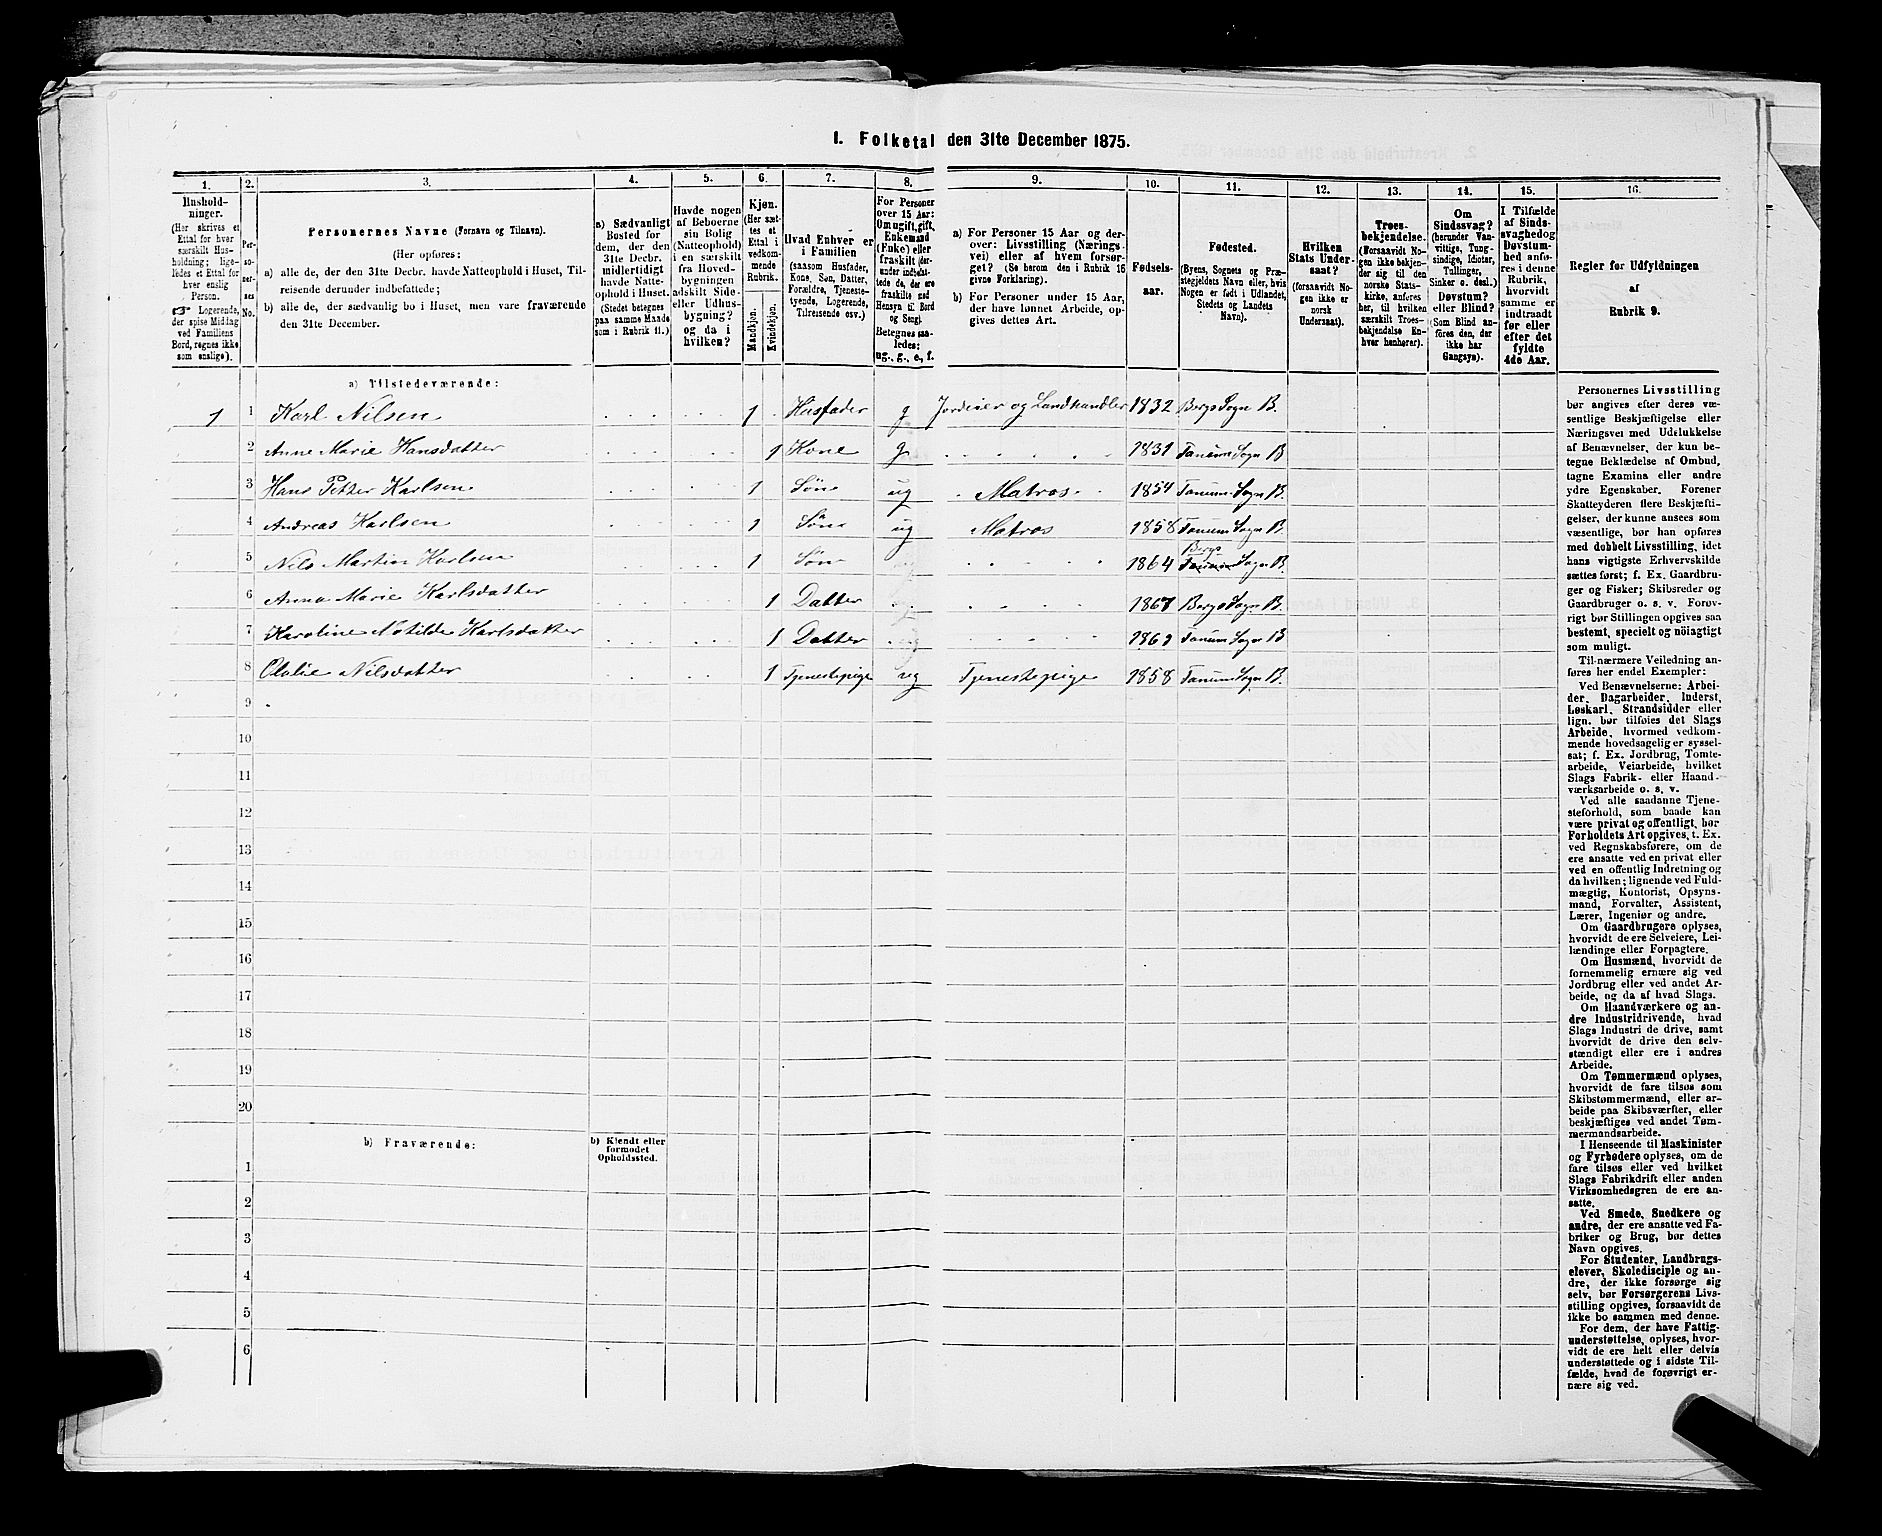 I. Folketal den 31te December 1875.
1. 2. 3. 4. 5. 6. 7. 8. 9. 10. 11. 12. 13. 14. 15. 16.
Husholdninger.
(Her skrives et
Ettal for hver
særskilt Husholdning;
ligeledes et Ettal for
hver enslig
Person.
☞ Logerende,
der spise Middag
ved Familiens
Bord, regnes ikke
som enslige).
Personernes No.
Personernes Navne (Fornavn og Tilnavn).
(Her opføres:
a) alle de, der den 31te Decbr. havde Natteophold i Huset, Tilreisende derunder indbefattede;
b) alle de, der sædvanlig bo i Huset, men vare fraværende
den 31te December.
a) Sædvanligt
Bosted for
dem, der den
31te Decbr.
midlertidigt
havde Natteophold i Huset.
(Stedet betegnes
paa samme Maade
som i Rubrik 11.)
Havde nogen
af Beboerne
sin Bolig
(Natteophold)
i en særskilt
fra Hovedbygningen
adskilt Side-
eller Udhusbygning?
og da i
hvilken?
Kjøn.
(Her sættes et
Ettal i
vedkommende
Rubrik.
Mandkjøn.
Kvindekjøn.
Hvad Enhver er
i Familien
(saasom Husfader,
Kone, Søn, Datter,
Forældre, Tjenestetyende, Logerende,
Tilreisende osv.)
For Personer
over 15 Aar:
Om ugift, gift,
Enkemand
(Enke) eller
fraskilt (derunder indbefattede de, der ere
fraskilte med
Hensyn til Bord
og Seng).
Betegnes saaledes:
ug., g., e., f.
a) For Personer 15 Aar og derover: Livsstilling (Næringsvei) eller af hvem forsørget? (Se herom den i Rubrik 16
givne Forklaring).
b) For Personer under 15 Aar,
der have lønnet Arbeide, opgives dettes Art.
Fødselsaar.
Fødested.
(Byens, Sognets og Præstegjeldets Navn eller, hvis
Nogen er født i Udlandet,
Stedets og Landets
Navn).
Hvilken
Stats Undersaat?
(forsaavidt Nogen ikke er
norsk
Undersaat).
Troesbekjendelse.
(Forsaavidt Nogen ikke bekjender sig til den
norske Statskirke, anføres
her, til hvilken
særskilt Troesbekjendelse Enhver henhører).
Om
Sindssvag?
(herunder Vanvittige, Tungsindige, Idioter,
Tullinger,
Sinker o. desl.)
Døvstum?
eller Blind?
(Som Blind anføres den, der
ikke har
Gangsyn).
I Tilfælde
af Sindssvaghed og
Døvstumhed anføres i denne
Rubrik,
hvorvidt
samme er
indtraadt
før eller
efter det
fyldte
4de Aar.
Regler for Udfyldningen
af
Rubrik 9.
a) Tilstedeværende:
1 1 Karl Nilsen 1 Husfader g Jordeier og Landhandler 1832 Bergs Sogn B.
2 Anne Marie Hansdatter 1 Kone g 1831 Tanum Sogn B
3 Hans Petter Karlsen 1 Søn ug Matros 1854 Tanum Sogn B.
4 Andreas Karlsen 1 Søn ug Matros 1858 Tanum Sogn B.
Bergs
5 Nils Martin Karlsen 1 Søn 1864 Tanum Sogn B.
6 Anna Marie Karlsdatter 1 Datter 1867 Bergs Sogn B.
7 Karoline Matilde Karlsdatter 1 Datter 1869 Tanum Sogn B
8 Olalie Nilsdatter 1 Tjenestepige ug Tjenestepige 1858 Tanum Sogn B.
9
10
11
12
13
14
15
16
17
18
19
20
b) Fraværende: b) Kjendt eller
formodet
Opholdssted.
1
2
3
4
5
6
Personernes Livsstilling
bør angives efter deres væsentlige Beskjæftigelse eller
Næringsvei med Udelukkelse
af Benævnelser, der kun betegne Beklædelse af Ombud,
tagne Examina eller andre
ydre Egenskaber. Forener
Skatteyderen flere Beskjæftigelser, der kunne ansees som
væsentlige, bør han opføres
med dobbelt Livsstilling, idet
hans vigtigste Erhvervskilde
sættes først; f. Ex. Gaardbruger og Fisker; Skibsreder og
Gaardbruger o. s. v. Forøvrigt bør Stillingen opgives saa
bestemt, specielt og nøiagtigt
som muligt.
Til nærmere Veiledning anføres her endel Exempler:
Ved Benævnelserne: Arbeider, Dagarbeider, Inderst,
Løskarl, Strandsidder eller
lign. bør tilføies det Slags
Arbeide, hvormed vedkommende hovedsagelig er sysselsat; f. Ex. Jordbrug, Tomtearbeide, Veiarbeide, hvilket
Slags Fabrik- eller Haandværksarbeide o. s. v.
Ved alle saadanne Tjenesteforhold, som baade kan
være privat og offentligt, bør
Forholdets Art opgives, t. Ex.
ved Regnskabsførere, om de
ere ansatte ved en privat eller
ved en offentlig Indretning og
da hvilken; lignende ved Fuldmægtig, Kontorist, Opsynsmand, Forvalter, Assistent,
Lærer, Ingeniør og andre.
Om Gaardbrugere oplyses,
hvorvidt de ere Selveiere, Leilændinge eller Forpagtere.
Om Husmænd, hvorvidt de
fornemmelig ernære sig ved
Jordbrug eller ved andet Arbeide, og da af hvad Slags.
Om Haandværkere og andre Industridrivende, hvad
Slags Industri de drive, samt
hvorvidt de drive den selvstændigt eller ere i andres
Arbeide.
Om Tømmermænd oplyses,
hvorvidt de fare tilsøs som
Skibstømmermænd, eller arbeide paa Skibsværfter, eller
beskjæftiges ved andet Tømmermandsarbeide.
I Henseende til Maskinister
og Fyrbødere oplyses, om de
fare tilsøs eller ved hvilket
Slags Fabrikdrift eller anden
Virksomhedsgren de ere ansatte.
Ved Smede, Snedkere og
andre, der ere ansatte ved Fabriker og Brug, bør dettes
Navn opgives.
For Studenter, Landbrugselever, Skoledisciple og andre, der ikke forsørge sig
selv, bør Forsørgerens Livsstilling opgives, forsaavidt de
ikke bo sammen med denne.
For dem, der have Fattigunderstøttelse, oplyses, hvorvidt de ere helt eller delvis
understøttede og i sidste Tilfælde, hvad de forøvrigt ernære sig ved.